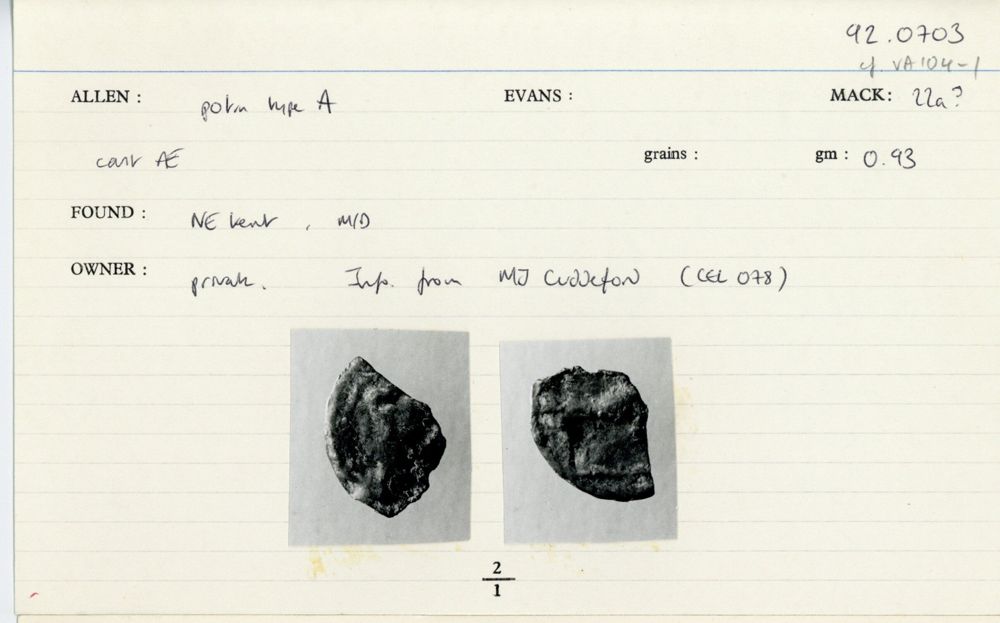 92.0703
cf. VA104-1
ALLEN : potin type A EVANS : MACK: 22a?
cast AE grains : gm : 0.93
FOUND : NE Kent, M/D
OWNER : private. Info. from MJ Cuddeford (CEL 078)
2
1